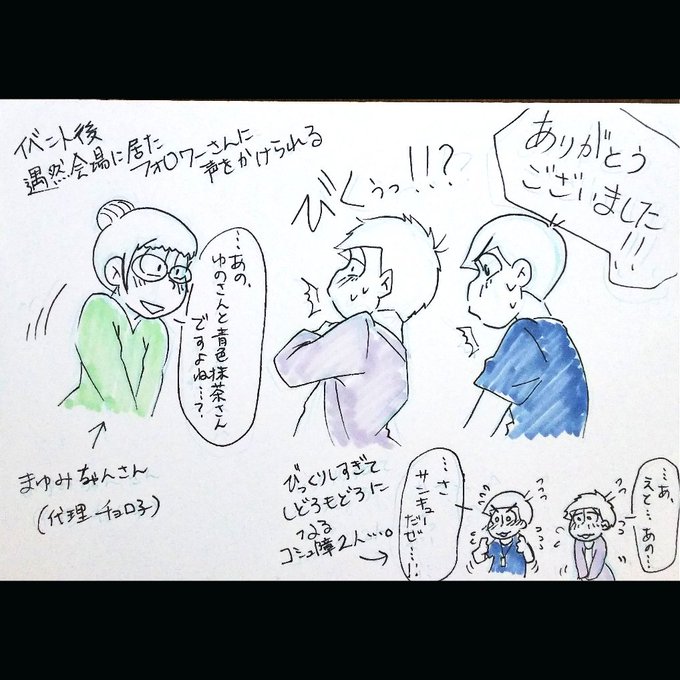 イベント後
遇然会場に居た
フォロワーさんに
声をかけられる
ありがとう
ございました
!!!
びくぅっ!!?
…あの、
ゆのさんと青色抹茶さん
ですよね…?
まゆみちゃんさん
(代理チョロ子)
びっくりしすぎて
しどろもどろに
なる
コミュ障2人…。
…さ
サンキュー
だぜ…!!
…あ、
えと…あの…